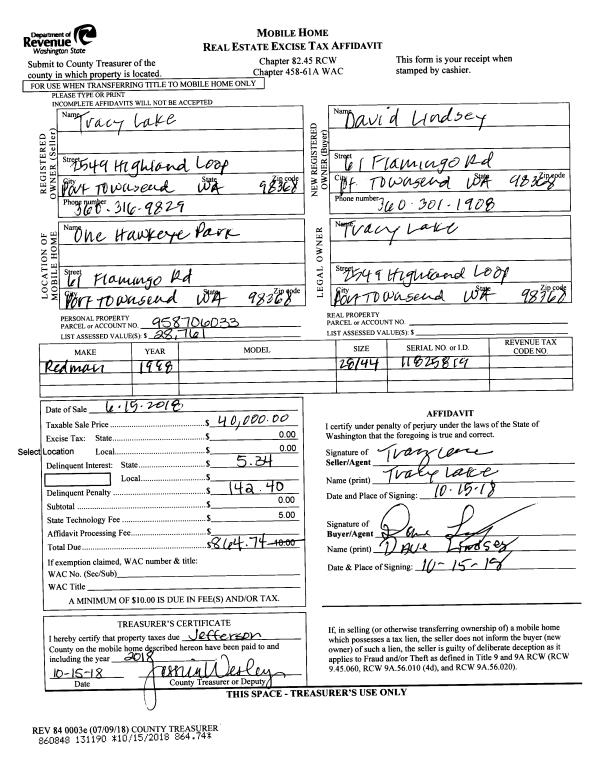 Department of
Revenue
Washington State
MOBILE HOME
REAL ESTATE EXCISE TAX AFFIDAVIT
Submit to County Treasurer of the
county in which property is located.
Chapter 82.45 RCW
Chapter 458-61A WAC
This form is your receipt when
stamped by cashier.
FOR USE WHEN TRANSFERRING TITLE TO MOBILE HOME ONLY
PLEASE TYPE OR PRINT
INCOMPLETE AFFIDAVITS WILL NOT BE ACCEPTED
REGISTERED
OWNER (Seller)
Name Tracy Lake
Street 2549 Highland Loop
City Port Townsend State WA Zip code 98368
Phone number 360-316-9829
NEW REGISTERED
OWNER (Buyer)
Name David Lindsey
Street 61 Flamingo Rd
City Pt. Townsend State WA Zip code 98368
Phone number 360-301-1908
LOCATION OF
MOBILE HOME
Name One Hawkeye Park
Street 61 Flamingo Rd
City Port Townsend State WA Zip code 98368
LEGAL OWNER
Name Tracy Lake
Street 2549 Highland Loop
City Port Townsend State WA Zip code 98368
PERSONAL PROPERTY
PARCEL or ACCOUNT NO. 958706033
LIST ASSESSED VALUE(S): $ 28,761
REAL PROPERTY
PARCEL or ACCOUNT NO.
LIST ASSESSED VALUE(S): $
MAKE YEAR MODEL SIZE SERIAL NO. or I.D. REVENUE TAX CODE NO.
Redman 1998 28/44 11825819
Date of Sale 6-15-2018
Taxable Sale Price $ 40,000.00
Excise Tax: State $ 0.00
Select Location Local $ 0.00
Delinquent Interest: State $ 5.34
Local $
Delinquent Penalty $ 142.40
Subtotal $ 0.00
State Technology Fee $ 5.00
Affidavit Processing Fee $
Total Due $ 864.74 10.00
If exemption claimed, WAC number & title:
WAC No. (Sec/Sub)
WAC Title
A MINIMUM OF $10.00 IS DUE IN FEE(S) AND/OR TAX.
AFFIDAVIT
I certify under penalty of perjury under the laws of the State of
Washington that the foregoing is true and correct.
Signature of
Seller/Agent
Name (print) Tracy Lake
Date and Place of Signing: 10-15-18
Signature of
Buyer/Agent
Name (print) Dave Lindsey
Date & Place of Signing: 10-15-18
TREASURER'S CERTIFICATE
I hereby certify that property taxes due Jefferson
County on the mobile home described hereon have been paid to and
including the year 2018
10-15-18
Date County Treasurer or Deputy
If, in selling (or otherwise transferring ownership of) a mobile home
which possesses a tax lien, the seller does not inform the buyer (new
owner) of such a lien, the seller is guilty of deliberate deception as it
applies to Fraud and/or Theft as defined in Title 9 and 9A RCW (RCW
9.45.060, RCW 9A.56.010 (4d), and RCW 9A.56.020).
THIS SPACE - TREASURER'S USE ONLY
REV 84 0003e (07/09/18) COUNTY TREASURER
860848 131190 *10/15/2018 864.74*